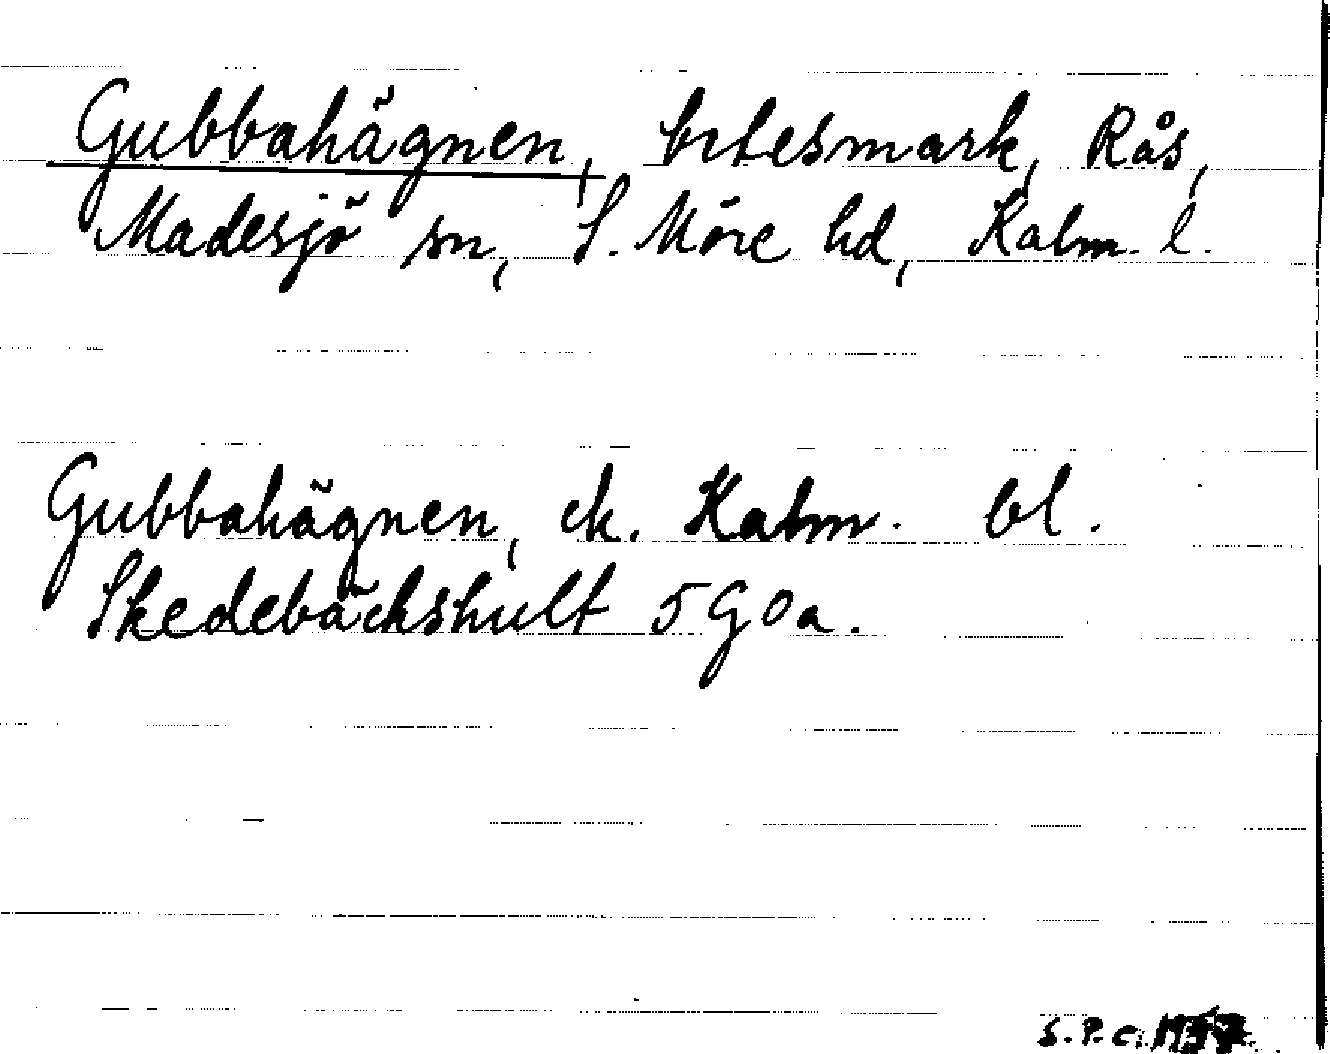 Gubbahägnen, betesmark, Rås,
Madesjö sn, S. Möre hd, Kalm. l.
Gubbahägnen, ek. Kalm. bl.
Skedebäckshult 5 G 0 a.
S.P.C.